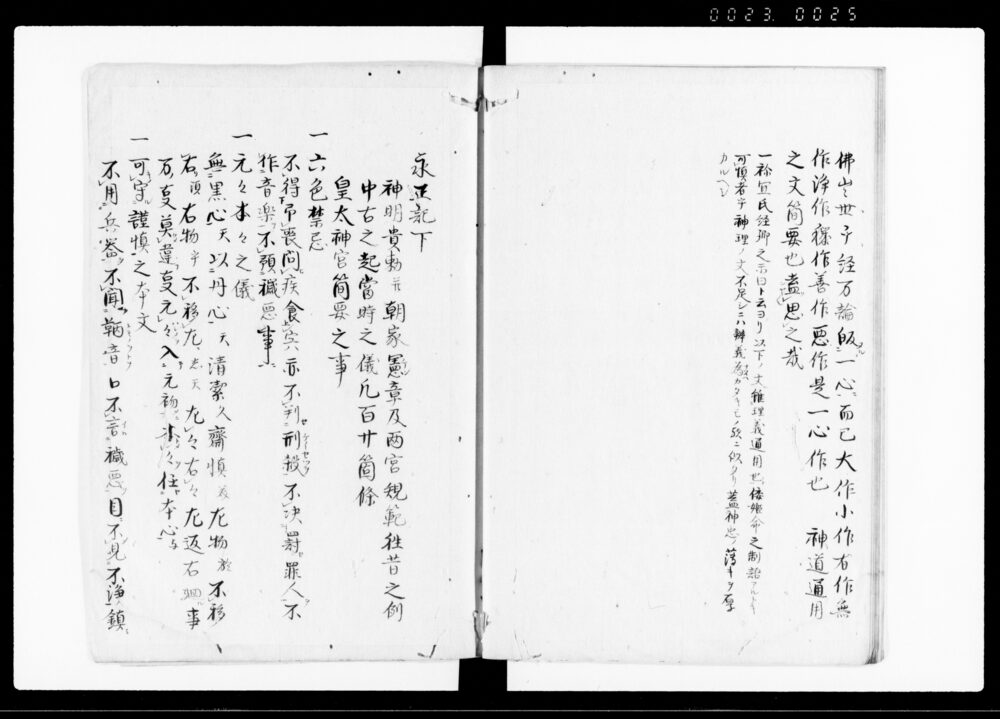 0023. 0025
佛出世于経万論皈一心而已大作小作右作無
作浄作穢作善作悪作是一心作也 神道通用
之文簡要也盍思之哉
一祢冝氏経卿之示曰ト云ヨリ以下ノ文雖理義通用也倭姫命之制誥
可順者乎神理ノ文不足シニハ
カルヘシ
永正記下
神明貴勅并朝家憲章及両宮規範往昔之例
中古之起當時之儀凡百廿箇條
皇太神宮簡要之事
一 六色禁忌
不得吊喪問疾食宍亦不判刑殺不決罸罪人不
作音楽不預穢悪事
一 元々本々之儀
無黒心天以丹心天清潔久齋慎 左物於不移
右須右物乎不移左志天左々右々左返右廻事
万事莫違事元々入元初本々住本心与
一 可守謹慎之本文
不用兵器不聞鞆音口不言穢悪目不見不浄鎮